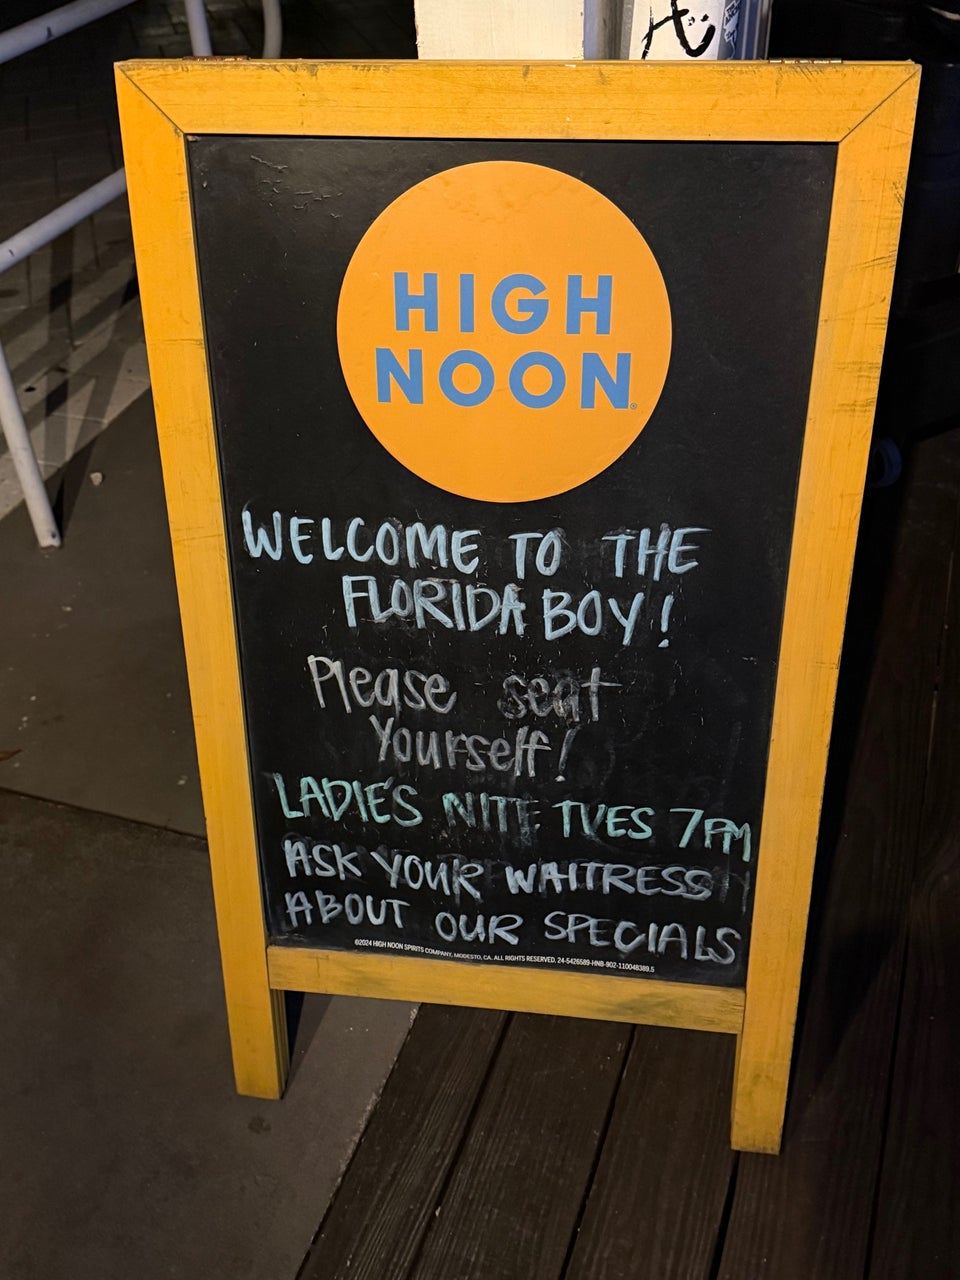 HIGH
NOON®
WELCOME TO THE
FLORIDA BOY!
Please seat
Yourself!
LADIE'S NITE TUES 7PM
ASK YOUR WAITRESS
ABOUT OUR SPECIALS
©2024 HIGH NOON SPIRITS COMPANY, MODESTO, CA. ALL RIGHTS RESERVED. 24-5426589-HNB-902-110048389.5